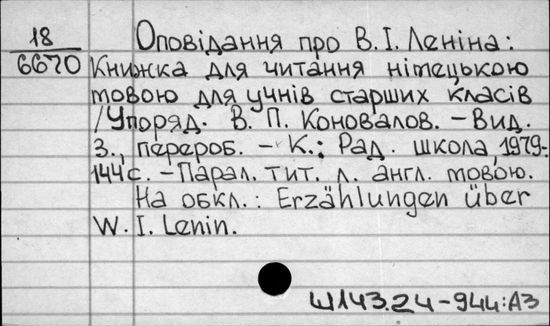 18
6670
Оповідання про В.І.Леніна:
Книжка для читання німецькою
мовою для учнів старших класів
/Упоряд. В. П. Коновалов. – Вид.
3., перероб. – К.: Рад. школа, 1979-
144с. – Парал. тит. л. англ. мовою.
На обкл.: Erzählungen über
W. I. Lenin.
Ш143.24-944:А3